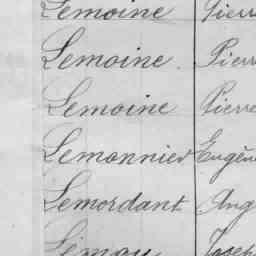 Lemoine Pierr
Lemoine Pierr
Lemoine Pierre
Lemonnier Eugène
Lemordant Ang
Lemoy Joseph